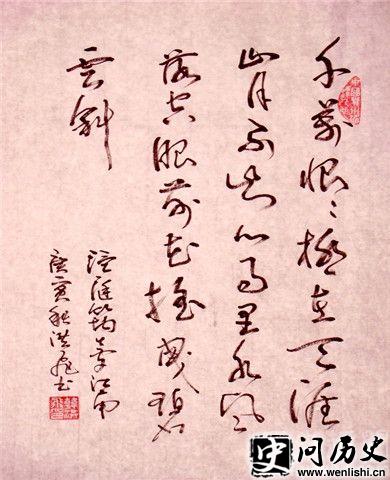 千萬恨〻極在天涯
山月不知心事里水風
落空眼前花摇曳碧
雲斜
温庭筠夢江南
庚寅秋洪飛书
问历史
www.wenlishi.cn